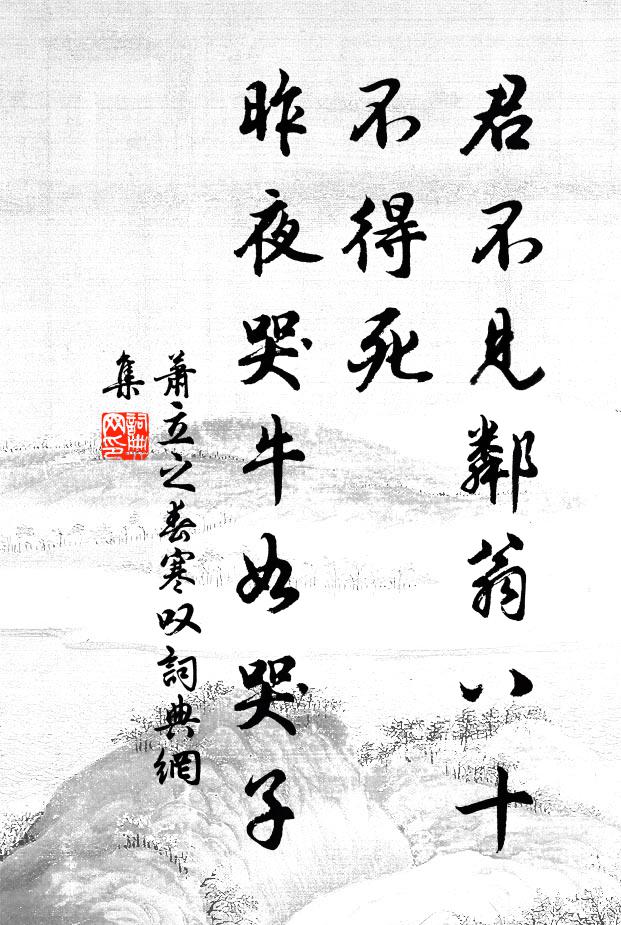 君不見鄰翁八十
不得死
昨夜哭牛如哭子
蕭立之春寒叹詞典網
集
詞典网印